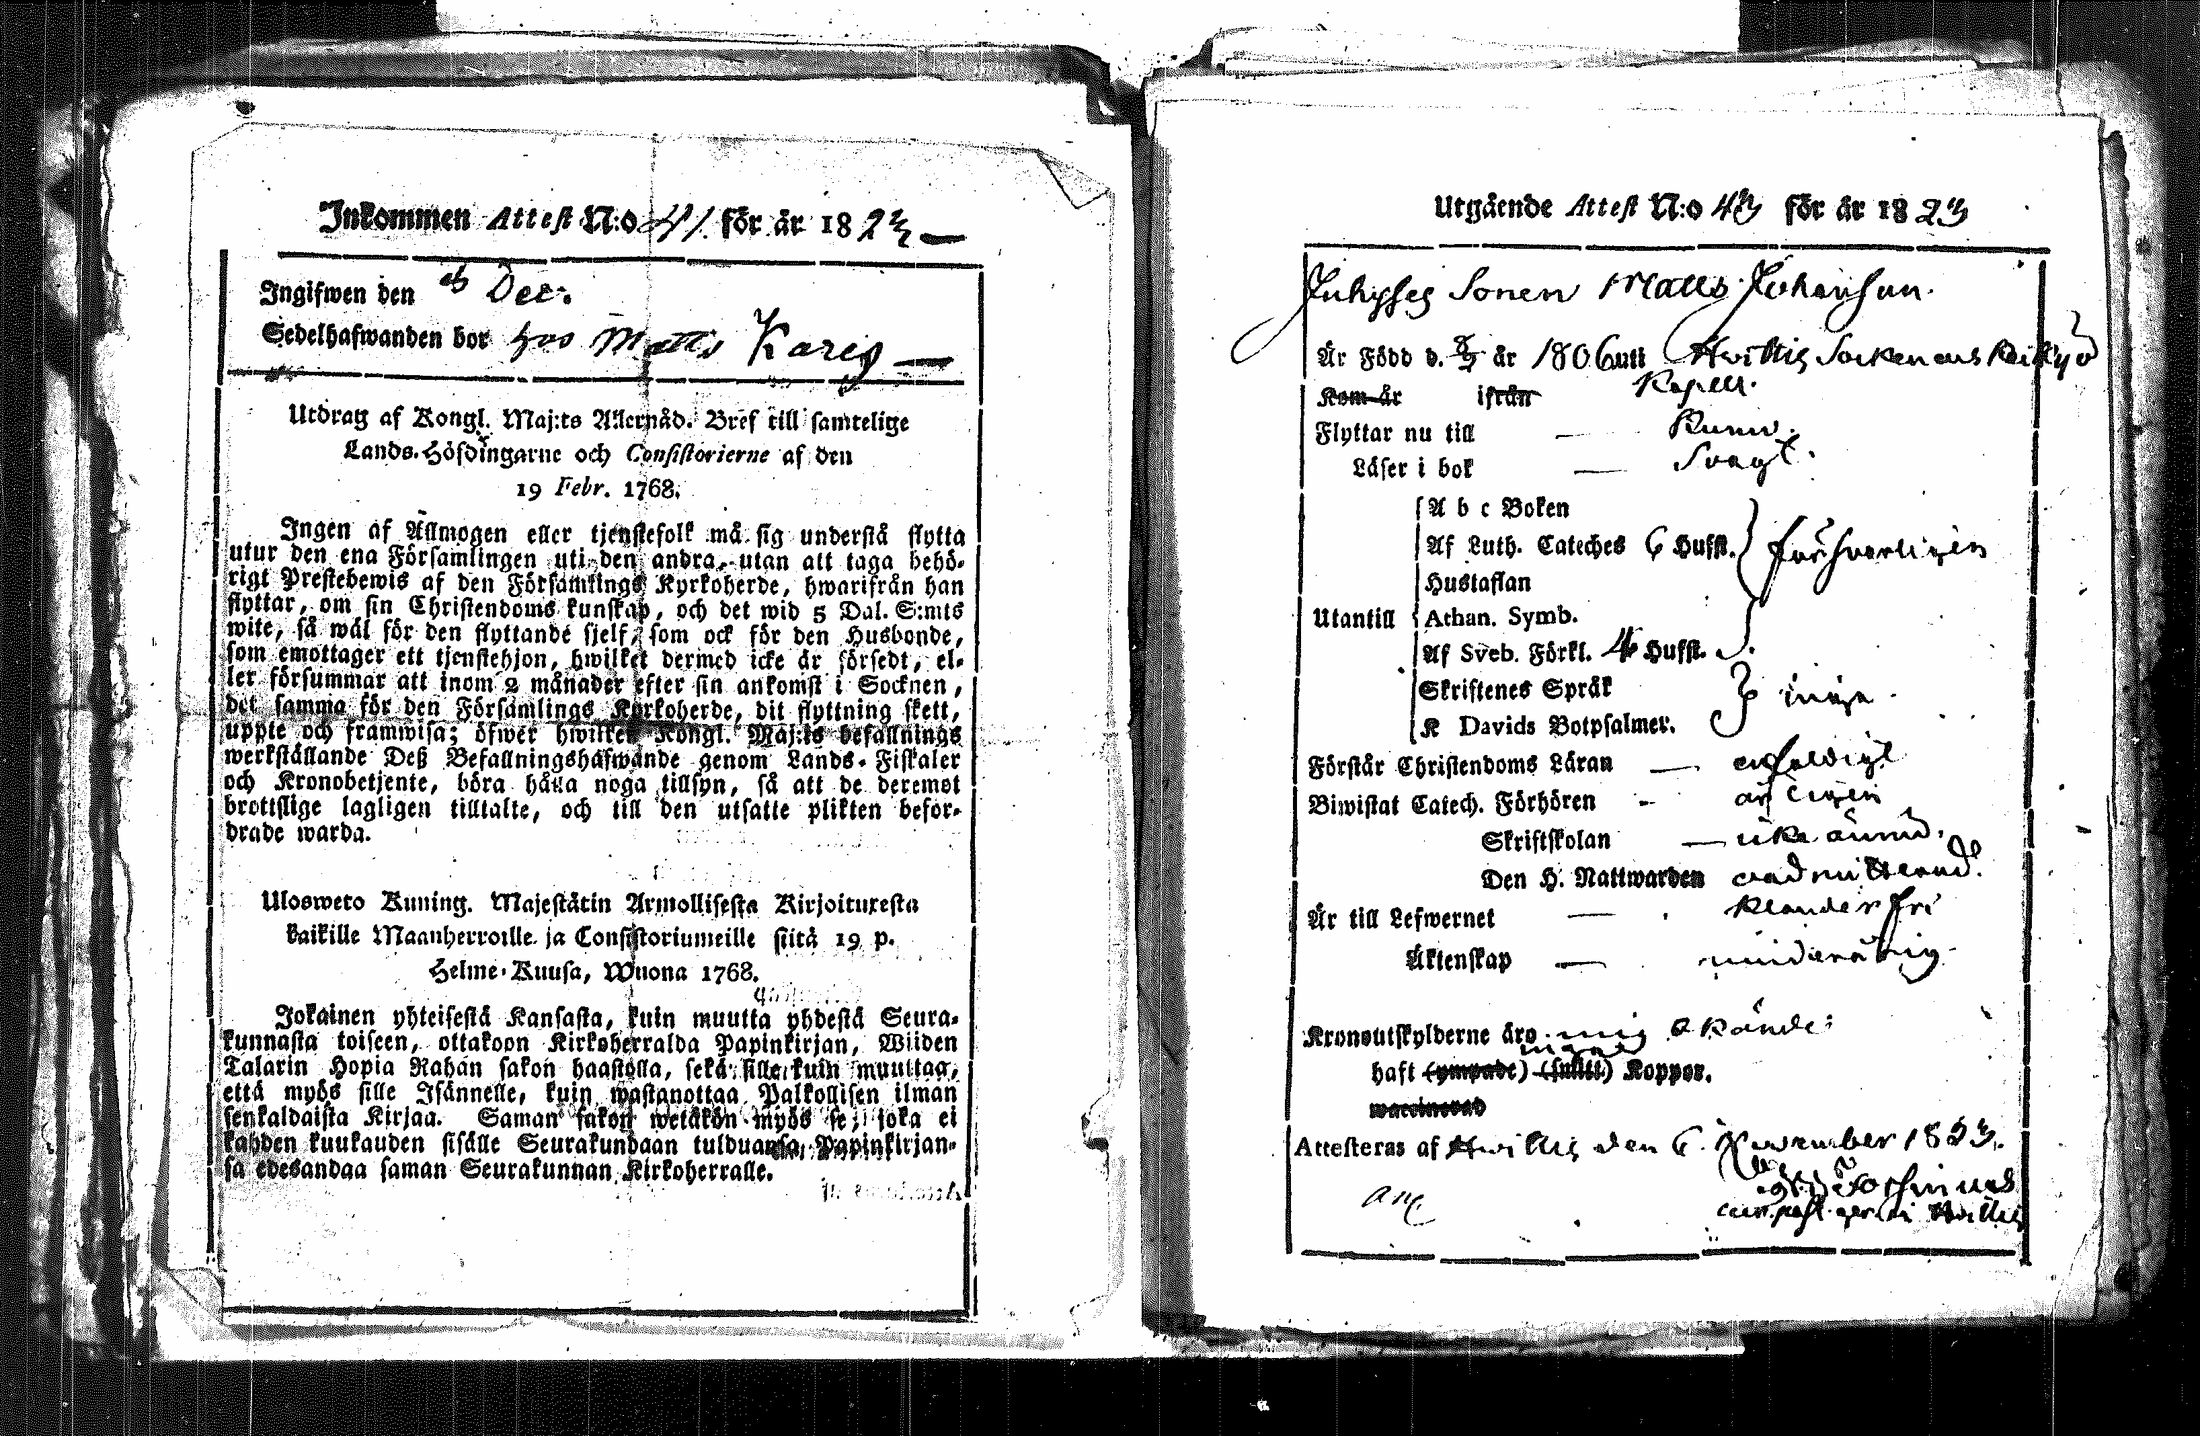 Inkommen Attest N:o 41. för år 1823
Ingifwen den Dec:
Sedelhafwanden bor hos Matts Kareg
Utdrag af Kongl. Maj:ts Allernåd. Bref till samtelige
Lands-Höfdingarne och Consistorierne af den
19 Febr. 1768.
Ingen af Allmogen eller tjenstefolk må sig understå flytta
utur den ena Församlingen uti den andra, utan att taga behö-
rigt Prestebewis af den Församlings Kyrkoherde, hwarifrån han
flyttar, om sin Christendoms kunskap, och det wid 5 Dal. S:mts
wite, så wäl för den flyttande sjelf, som ock för den Husbonde,
som emottager ett tjenstehjon, hwilket dermed icke är försedt, el-
ler försummar att inom 2 månader efter sin ankomst i Socknen,
det samma för den Församlings Kyrkoherde, dit flyttning skett,
uppte och framwisa; öfwer hwilket Kongl. Maj:ts befallnings
werkställande Deß Befallningshafwande genom Lands-Fiskaler
och Kronobetjente, böra hålla noga tillsyn, så att de deremot
brottslige lagligen tilltalte, och till den utsatte plikten beför-
drade warda.
Ulosweto Kuning. Majestätin Armollisesta Kirjoituxesta
kaikille Maanherroille ja Consistoriumeille siitä 19 p.
Helme-Kuusa, Wuona 1768.
Jokainen yhteisestä Kansasta, kuin muutta yhdestä Seura-
kunnasta toiseen, ottakoon Kirkoherralda Papinkirjan, Wiiden
Talarin Hopia Rahan sakon haastolla, sekä sille kuin muuttaa,
että myös sille Isännelle, kuin wastanottaa Palkollisen ilman
senkaldaista Kirjaa. Saman sakon wetäkön myös se, joka ei
kahden kuukauden sisälle Seurakundaan tulduansa, Papinkirjan-
sa edesandaa saman Seurakunnan Kirkoherralle.
Utgående Attest N:o 43 för år 1823
Sonen Matts Johansson.
Är Född d. år 1806 uti Hvittis Socken och Keikyö
Kapell.
Kom år ifrån
Flyttar nu till — Kumo.
Läser i bok — Svagt.
A b c Boken
Af Luth. Cateches 6 Hufst. försvarligen
Hustaflan
Utantill Athan. Symb.
Af Sveb. Förkl. 4 Hufst.
Skriftenes Språk inga
K Davids Botpsalmer.
Förstår Christendoms Läran — enfaldigt
Biwistat Catech. Förhören -
Skriftskolan — icke ännu.
Den H. Nattwarden oadmitterad.
Är till Lefwernet — klanderfri
Äktenskap — minderårig
Kronoutskylderne äro mig okände
haft (ympade) (sjelfl.) Koppor.
waccinerad
Attesteras af Hvittis den 6. November 1823.